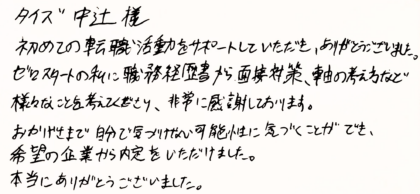 タイズ 中辻 様
初めての転職活動をサポートしていただき、ありがとうございました。
ゼロスタートの私に職務経歴書から面接対策、軸の考え方など
様々なことを考えてくださり、非常に感謝しております。
おかげさまで自分で気づけない可能性に気づくことができ、
希望の企業から内定をいただけました。
本当にありがとうございました。